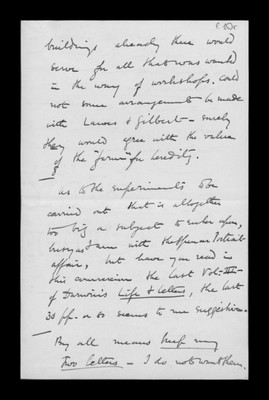 buildings already there would
serve for all that was wanted
in the way of workshops. Could
not some arrangement be made
with Lawes & Gilbert – surely
they would agree with the value
of the "farm" for heredity.
as to the experiments to be
carried out that is altogether
too big a subject to enter upon,
busy as I am with the
affair, but have you read in
this connexion the last Vol–III–
of Darwin's Life & Letters, the last
30 pp. or so seems to me suggestive.
By all means keep my
Two letters – I do not want them.